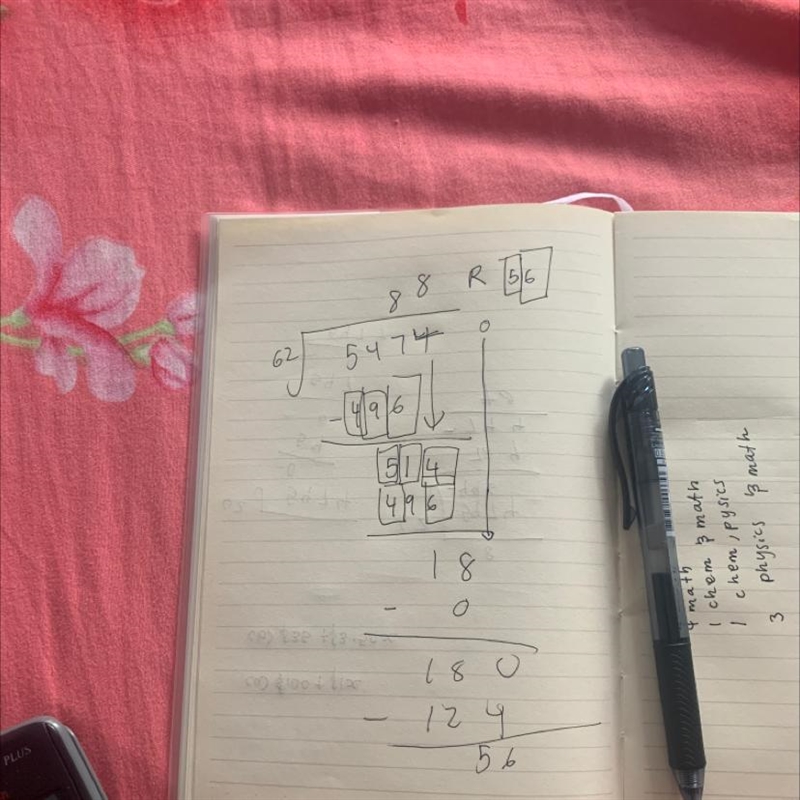 88 R 56
62 5474 0
- 496
514
496
18
- 0
180
- 124
56
4 math
1 chem & math
1 chem, pysics
3 physics & math
PLUS